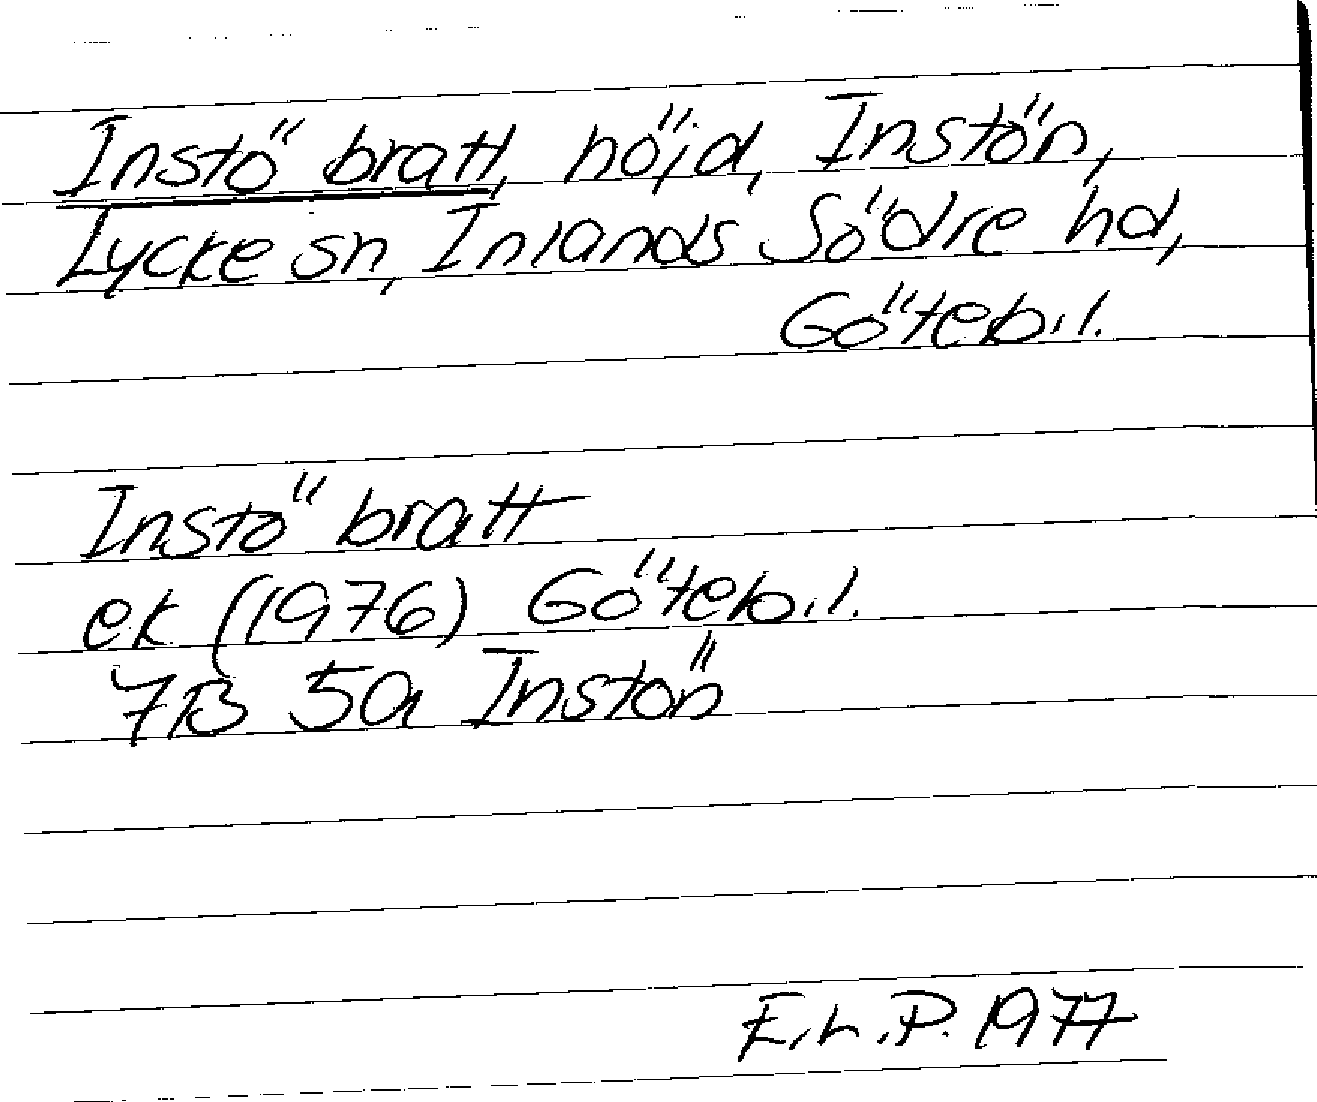 Instö bratt, höjd, Instön,
Lycke sn, Inlands Södre hd,
Göteb.l.
Instö bratt
ek (1976) Göteb.l.
7B 5a Instön
E.L.P. 1977